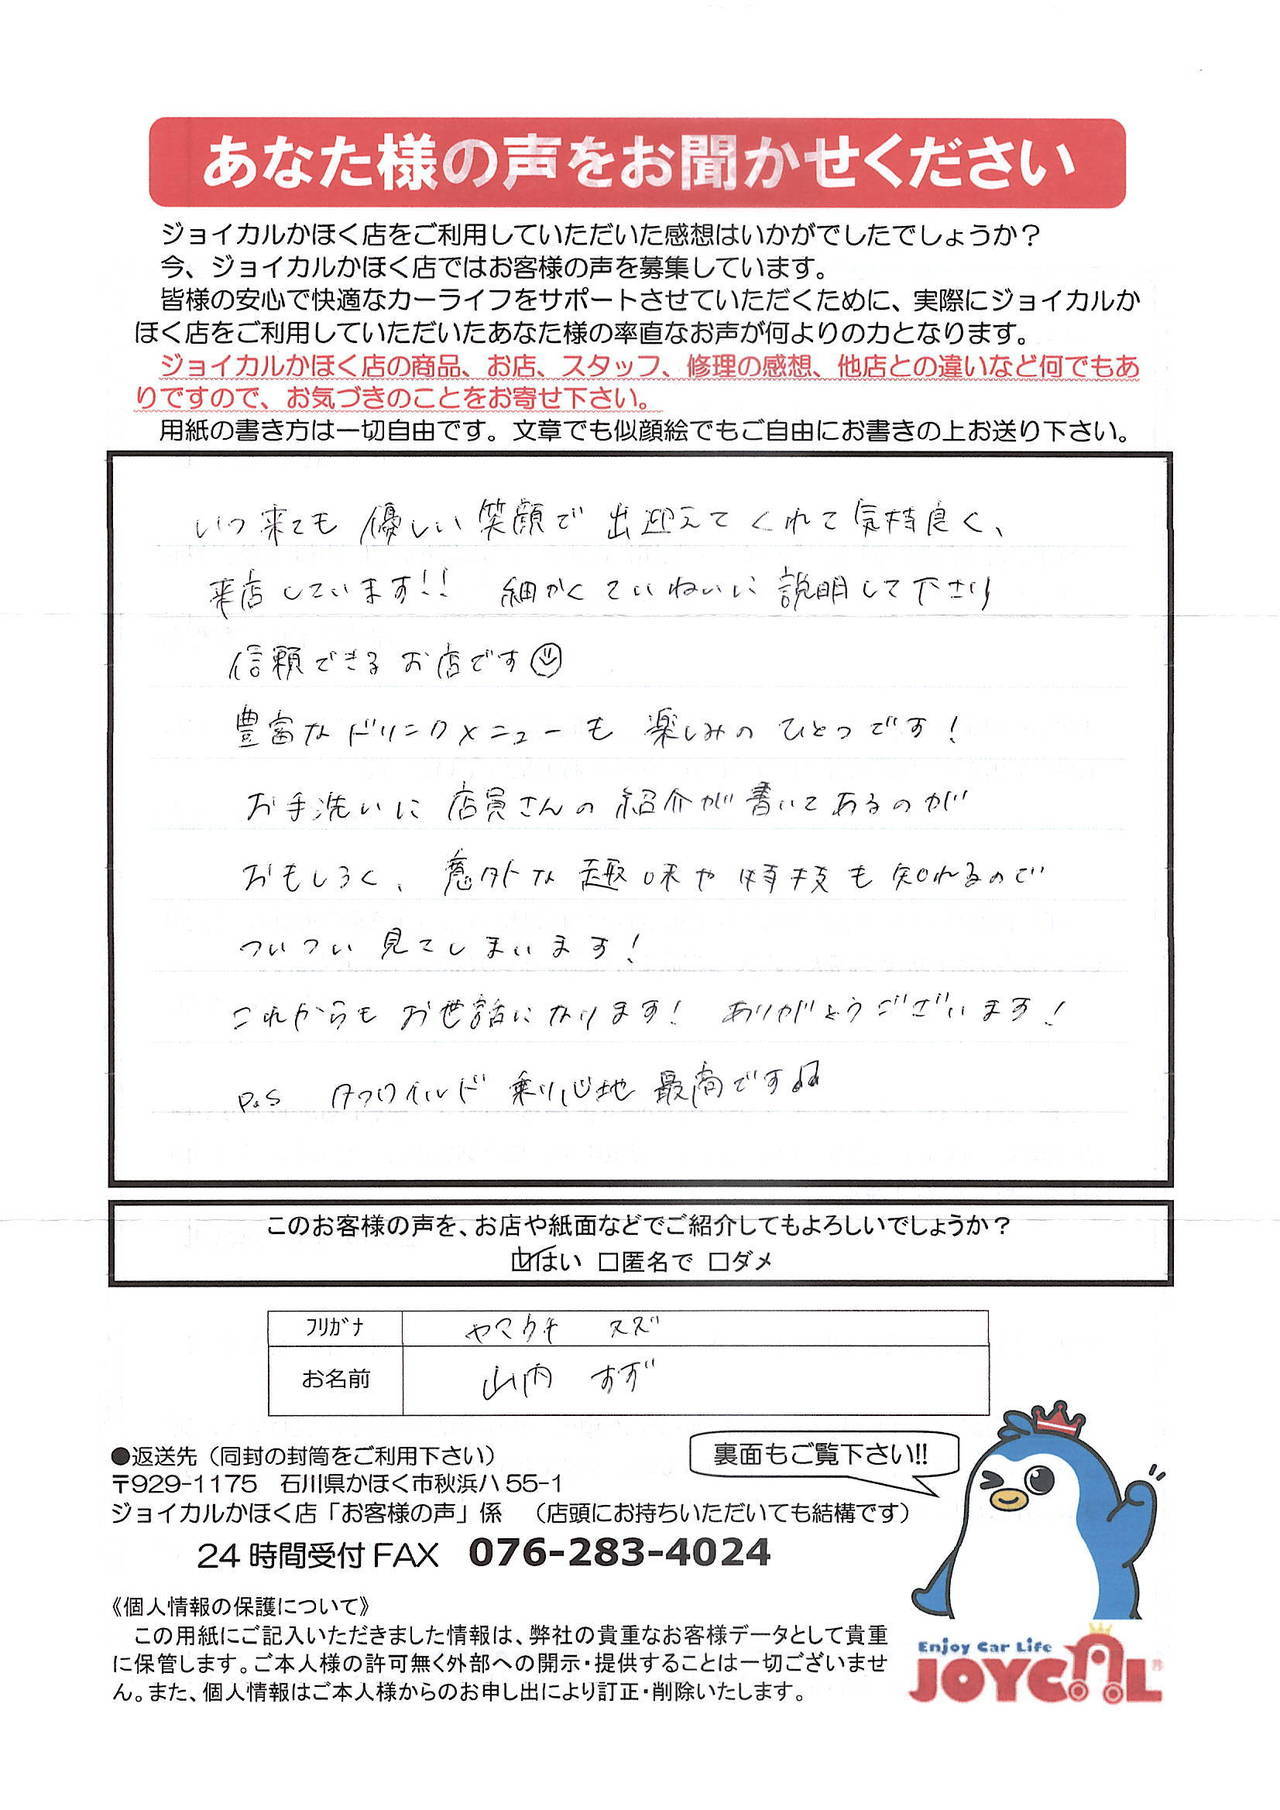 あなた様の声をお聞かせください
ジョイカルかほく店をご利用していただいた感想はいかがでしたでしょうか？
今、ジョイカルかほく店ではお客様の声を募集しています。
皆様の安心で快適なカーライフをサポートさせていただくために、実際にジョイカルか
ほく店をご利用していただいたあなた様の率直なお声が何よりの力となります。
ジョイカルかほく店の商品、お店、スタッフ、修理の感想、他店との違いなど何でもあ
りですので、お気づきのことをお寄せ下さい。
用紙の書き方は一切自由です。文章でも似顔絵でもご自由にお書きの上お送り下さい。
いつ来ても 優しい 笑顔で 出迎えてくれて 気持良く、
来店しています!! 細かくていねいに 説明して下さり
信頼できる お店です
豊富な ドリンクメニューも 楽しみの ひとつです!
お手洗いに 店員さんの 紹介が 書いてあるのが
おもしろく、意外な 趣味や 特技も 知れるので
ついつい 見てしまいます!
これからも お世話になります! ありがとうございます!
P.S タフワイルド 乗り心地 最高です♫
このお客様の声を、お店や紙面などでご紹介してもよろしいでしょうか？
☑はい □匿名で □ダメ
ﾌﾘｶﾞﾅ ヤマウチ スズ
お名前 山内 すず
●返送先（同封の封筒をご利用下さい）
裏面もご覧下さい!!
〒929-1175 石川県かほく市秋浜ハ55-1
ジョイカルかほく店「お客様の声」係 （店頭にお持ちいただいても結構です）
24時間受付FAX 076-283-4024
《個人情報の保護について》
この用紙にご記入いただきました情報は、弊社の貴重なお客様データとして貴重
に保管します。ご本人様の許可無く外部への開示・提供することは一切ございませ
ん。また、個人情報はご本人様からのお申し出により訂正・削除いたします。
Enjoy Car Life
JOYCAL